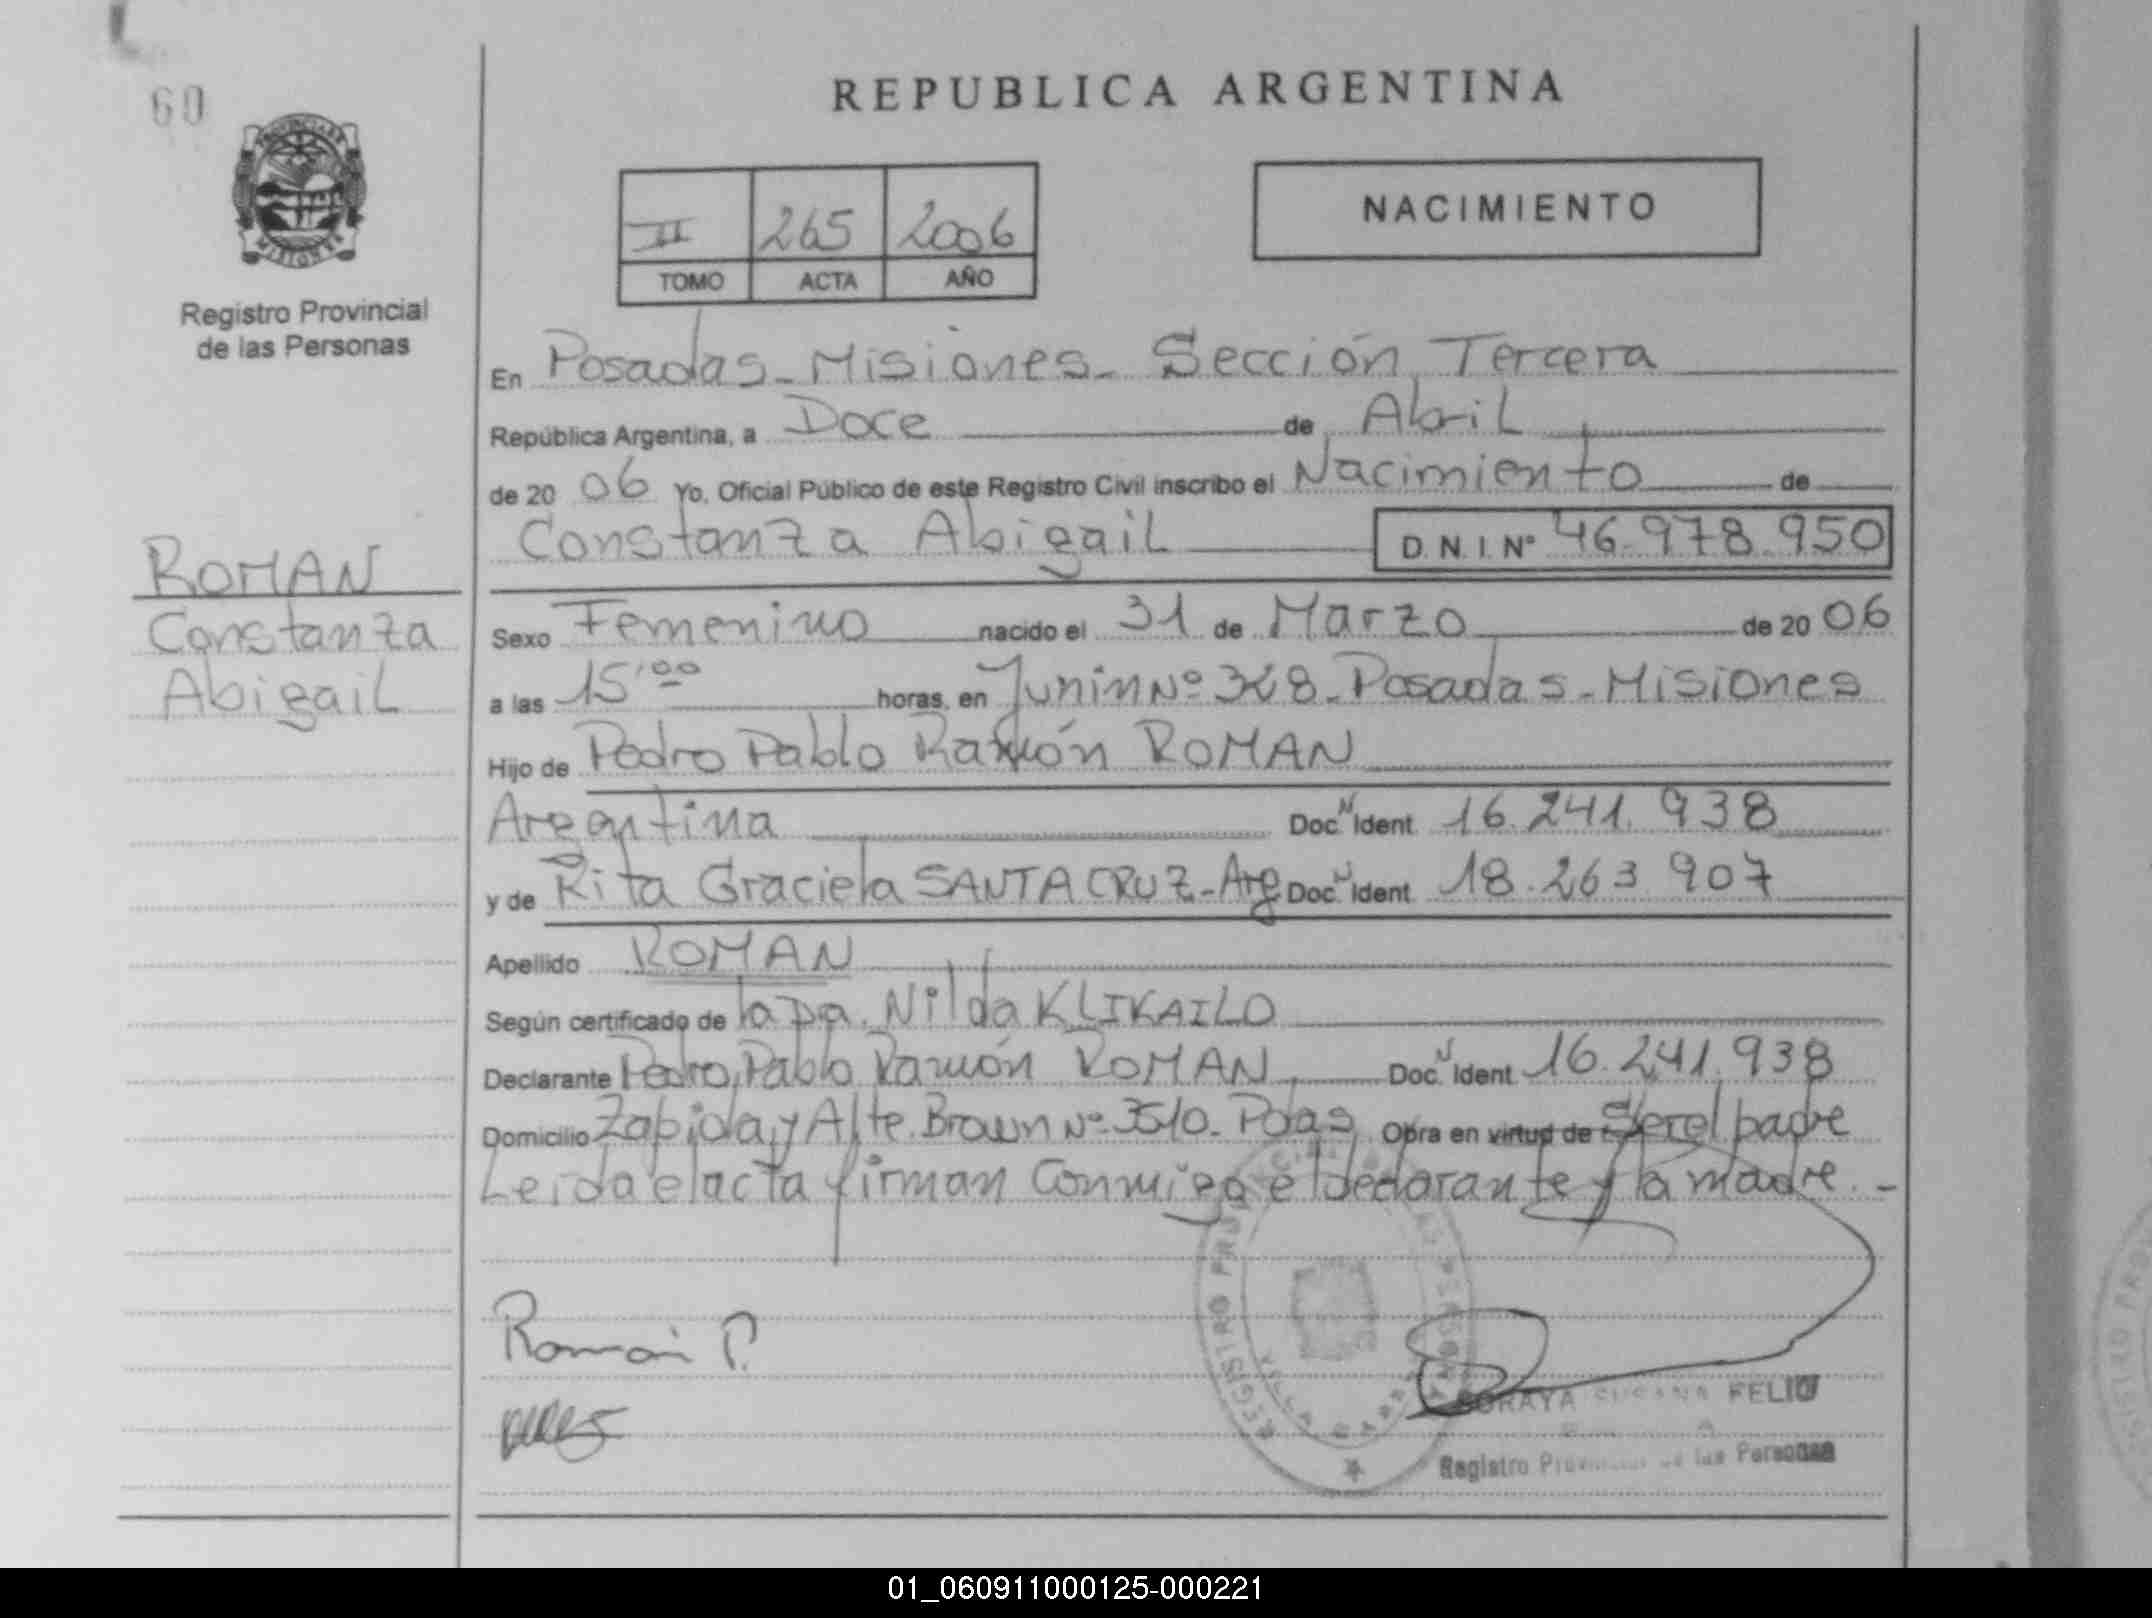 60
REPUBLICA ARGENTINA
PROVINCIA DE
MISIONES
II 265 2006
TOMO ACTA AÑO
NACIMIENTO
Registro Provincial
de las Personas
En Posadas - Misiones - Sección Tercera
República Argentina, a Doce de Abril
de 20 06 Yo, Oficial Público de este Registro Civil inscribo el Nacimiento de
Constanza Abigail D.N.I. Nº 46.978.950
ROMAN
Constanza
Abigail
Sexo Femenino nacido el 31 de Marzo de 20 06
a las 15,00 horas, en Junin Nº 328 - Posadas - Misiones
Hijo de Pedro Pablo Ramón ROMAN
Argentina Doc. N Ident 16.241.938
y de Rita Graciela SANTA CRUZ - Arg Doc. N Ident 18.263.907
Apellido ROMAN
Según certificado de la Dra. Nilda KLIKAILO
Declarante Pedro Pablo Ramón ROMAN Doc. N Ident 16.241.938
Domicilio y Alte. Brown Nº 3510 - Pdas Obra en virtud de Ser el padre
Leida el acta firman Conmigo el declarante y la madre. -
Roman P.
REGISTRO PROVINCIAL DE LAS PERSONAS
VILLA
SORAYA SUSANA FELIU
Registro Provincial de las Personas
01_060911000125-000221